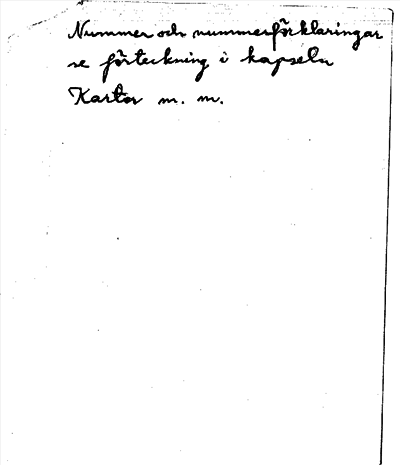 Nummer och nummerförklaringar
se förteckning i kapseln
Kartor m. m.